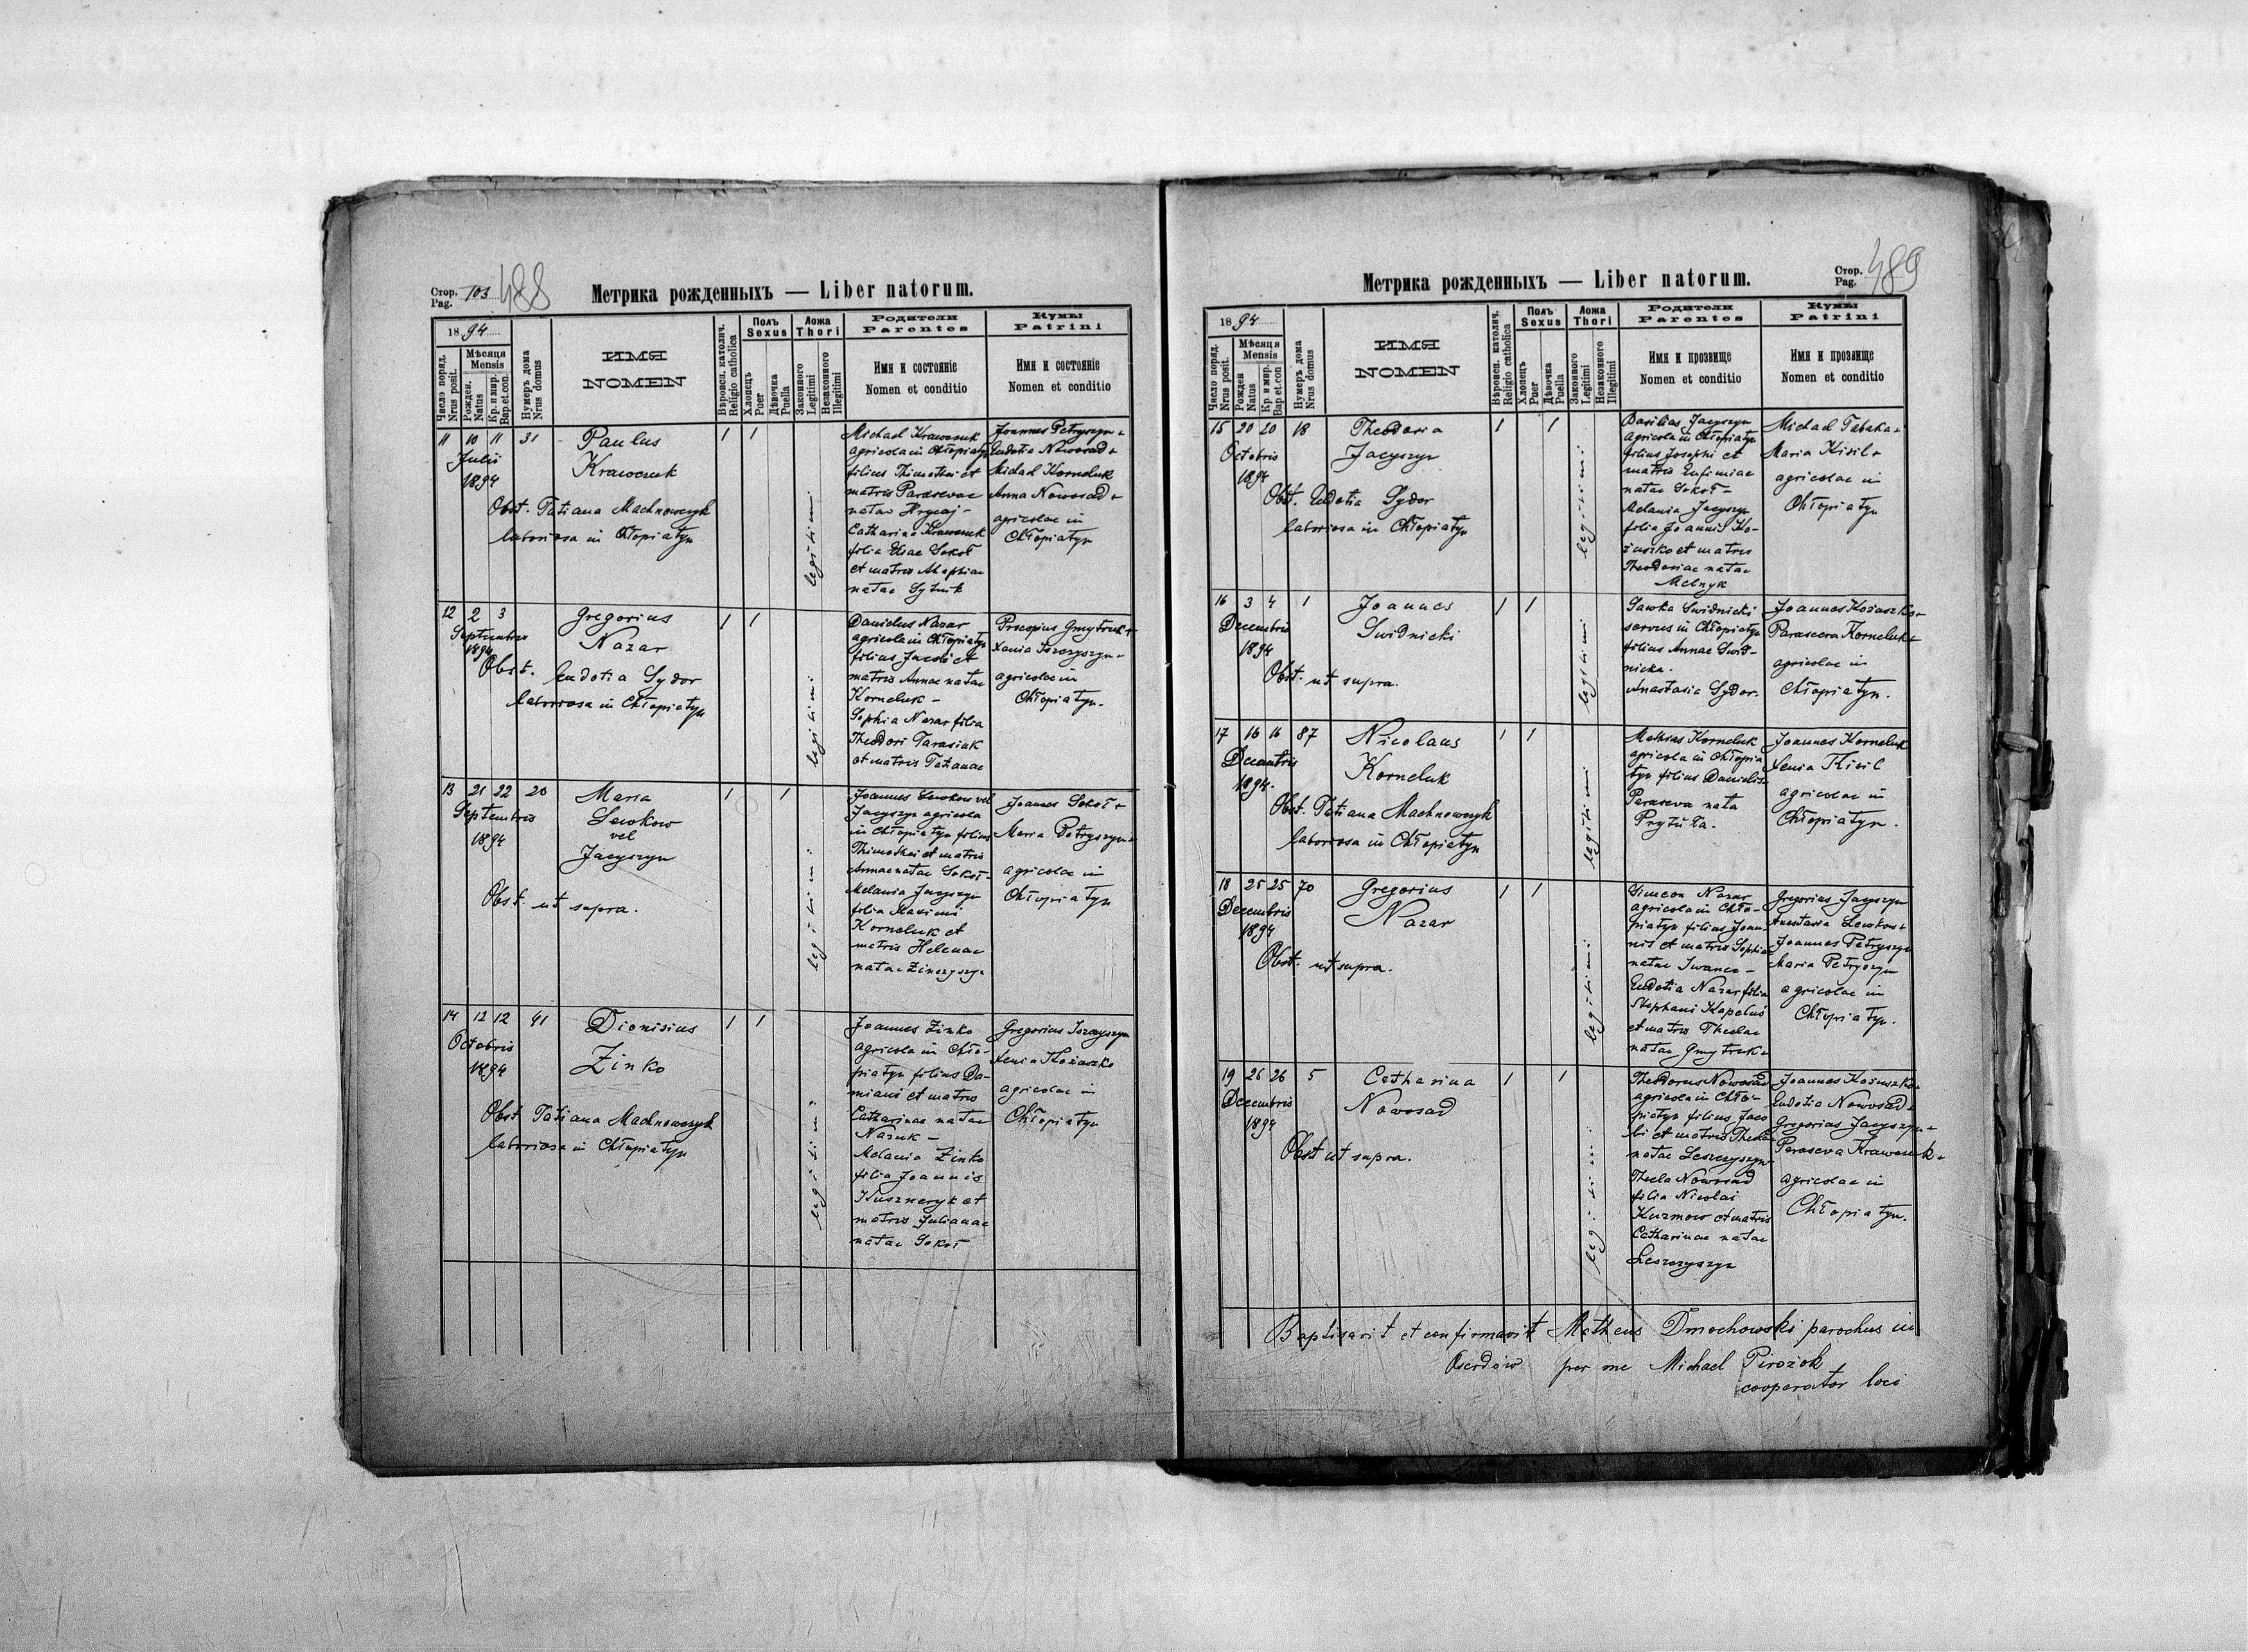 Стор. Pag. 103 488
Метрика рожденныхъ — Liber natorum.
1894
Число поряд. Nrus posit.
Мѣсяця Mensis
Рожден. Natus
Кр. и мир. Bap. et. con.
Нумеръ дома Nrus domus
ИМЯ
NOMEN
Вѣроисп. католич. Religio catholica
Полъ Sexus
Хлопецъ Puer
Дѣвочка Puella
Ложа Thori
Законного Legitimi
Незаконного Illegitimi
Родители
Parentes
Имя и состояніе
Nomen et conditio
Кумы
Patrini
Имя и состояніе
Nomen et conditio
11 10 11 31
Julii
1894
Paulus
Krawczuk
Obst. Tatiana Machnowczyk
laboriosa in Chłopiatyn
1 1
legitimi
Michael Krawczuk
agricola in Chłopiatyn
filius Thimothei et
matris Parascevae
natae Hrycaj -
Catharina Krawczuk
filia Eliae Sokoł
et matris Ahaphiae
natae Sytnik
Joannes Petryszyn +
Eudotia Nowosad +
Michael Korneluk
Anna Nowosad +
agricolae in
Chłopiatyn
12 2 3
Septembris
1894
Gregorius
Nazar
Obst. Eudotia Sydor
laboriosa in Chłopiatyn
1 1
legitimi
Danielus Nazar
agricola in Chłopiatyn
filius Jacobi et
matris Annae natae
Korneluk -
Sophia Nazar filia
Theodori Tarasiuk
et matris Tatianae
Procopius Gmytruk +
Xenia Iszczyszyn -
agricolae in
Chłopiatyn.
13 21 22 20
Septembris
1894
Maria
Lewkow
vel
Jacyszyn
Obst. ut supra.
1 1
legitimi
Joannes Lewkow vel
Jacyszyn agricola
in Chłopiatyn filius
Thimothei et matris
Annae natae Sokoł -
Melania Jacyszyn
filia Maximi
Korneluk et
matris Helenae
natae
Joannes Sokoł +
Maria Petryszyn +
agricolae in
Chłopiatyn
14 12 12 41
Octobris
1894
Dionisius
Zinko
Obst Tatiana Machnowczyk
laboriosa in Chłopiatyn
1 1
legitimi
Joannes Zinko
agricola in Chło-
piatyn filius Da-
miani et matris
Catharinae natae
Nazuk -
Melania Zinko
filia Joannis
Kuszneryk et
matris Julianae
natae Sokoł
Gregorius Iszczyszyn
Xenia Kożuszko
agricolae in
Chłopiatyn
Стор. Pag. 489
Метрика рожденныхъ — Liber natorum.
1894
Число поряд. Nrus posit.
Мѣсяця Mensis
Рожден Natus
Кр. и мир. Bap. et. con
Нумеръ дома Nrus domus
ИМЯ
NOMEN
Вѣроисп. католич. Religio catholica
Полъ Sexus
Хлопецъ Puer
Дѣвочка Puella
Ложа Thori
Законного Legitimi
Незаконного Illegitimi
Родители
Parentes
Имя и прозвище
Nomen et conditio
Кумы
Patrini
Имя и прозвище
Nomen et conditio
15 20 20 18
Octobris
1894
Theodoria
Jacyszyn
Obst. Eudotia Sydor
laboriosa in Chłopiatyn
1 1
legitimi
Basilius Jacyszyn
agricola in Chłopiatyn
filius Josephi et
matris Eufimiae
natae Sokoł -
Melania Jacyszyn
filia Joannis Ko-
żuszko et matris
Theodoriae natae
Melnyk
Michael Tabaka +
Maria Kisil +
agricolae in
Chłopiatyn
16 3 4 1
Decembris
1894
Joannes
Swidnicki
Obst. ut supra.
1 1
legitimi
Sawka Swidnicki
servus in Chłopiatyn
filius Annae Swid-
nicka.
Anastasia Sydor.
Joannes Kożuszko +
Parasceva Korneluk +
agricolae in
Chłopiatyn.
17 16 16 87
Decembris
1894.
Nicolaus
Korneluk
Obst. Tatiana Machnowczyk
laboriosa in Chłopiatyn
1 1
legitimi
Mathias Korneluk
agricola in Chłopia
tyn filius Danielis
Paraseva nata
Prytuła.
Joannes Korneluk
Xenia Kisil
agricolae in
Chłopiatyn.
18 25 25 70
Decembris
1894
Gregorius
Nazar
Obst. ut supra.
1 1
legitimi
Simeon Nazar
agricola in Chło-
piatyn filius Joan-
nis et matris Sophiae
natae Iwanca -
Eudotia Nazar filia
Stephani Kapeluś
et matris Theclae
natae Gmytruk +
Gregorius Jacyszyn
Anastasia Lewkow +
Joannes Petryszyn
Maria Petryszyn
agricolae in
Chłopiatyn.
19 26 26 5
Decembris
1894
Catharina
Nowosad
Obst ut supra.
1 1
legitimi
Theodorus Nowosad
agricola in Chło-
piatyn filius Jaco
bi et matris Theclae
natae Leszczyszyn -
Thecla Nowosad
filia Nicolai
Kuzmow et matris
Catharinae natae
Leszczyszyn
Joannes Kożuszko +
Eudotia Nowosad +
Gregorius Jacyszyn -
Paraseva Krawczuk -
agricolae in
Chłopiatyn.
Baptisavit et confirmavit Matheus Dmochowski parochus in
Oserdów per me Michael Pirożok
cooperator loci